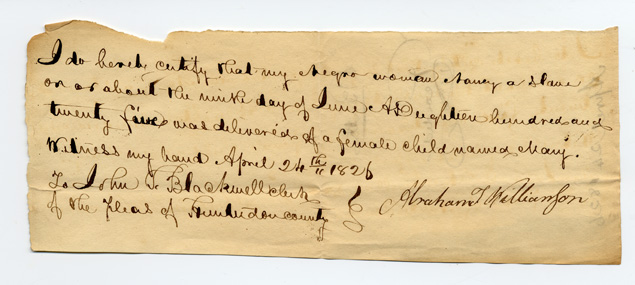 I do hereby certify that my Negro woman Nancy a slave
on or about the ninth day of June AD eighteen hundred and
twenty five was delivered of a female child named Mary.
Witness my hand April 24th 1826
To John T Blackwell clerk
of the Pleas of Hunterdon county
Abraham T Williamson